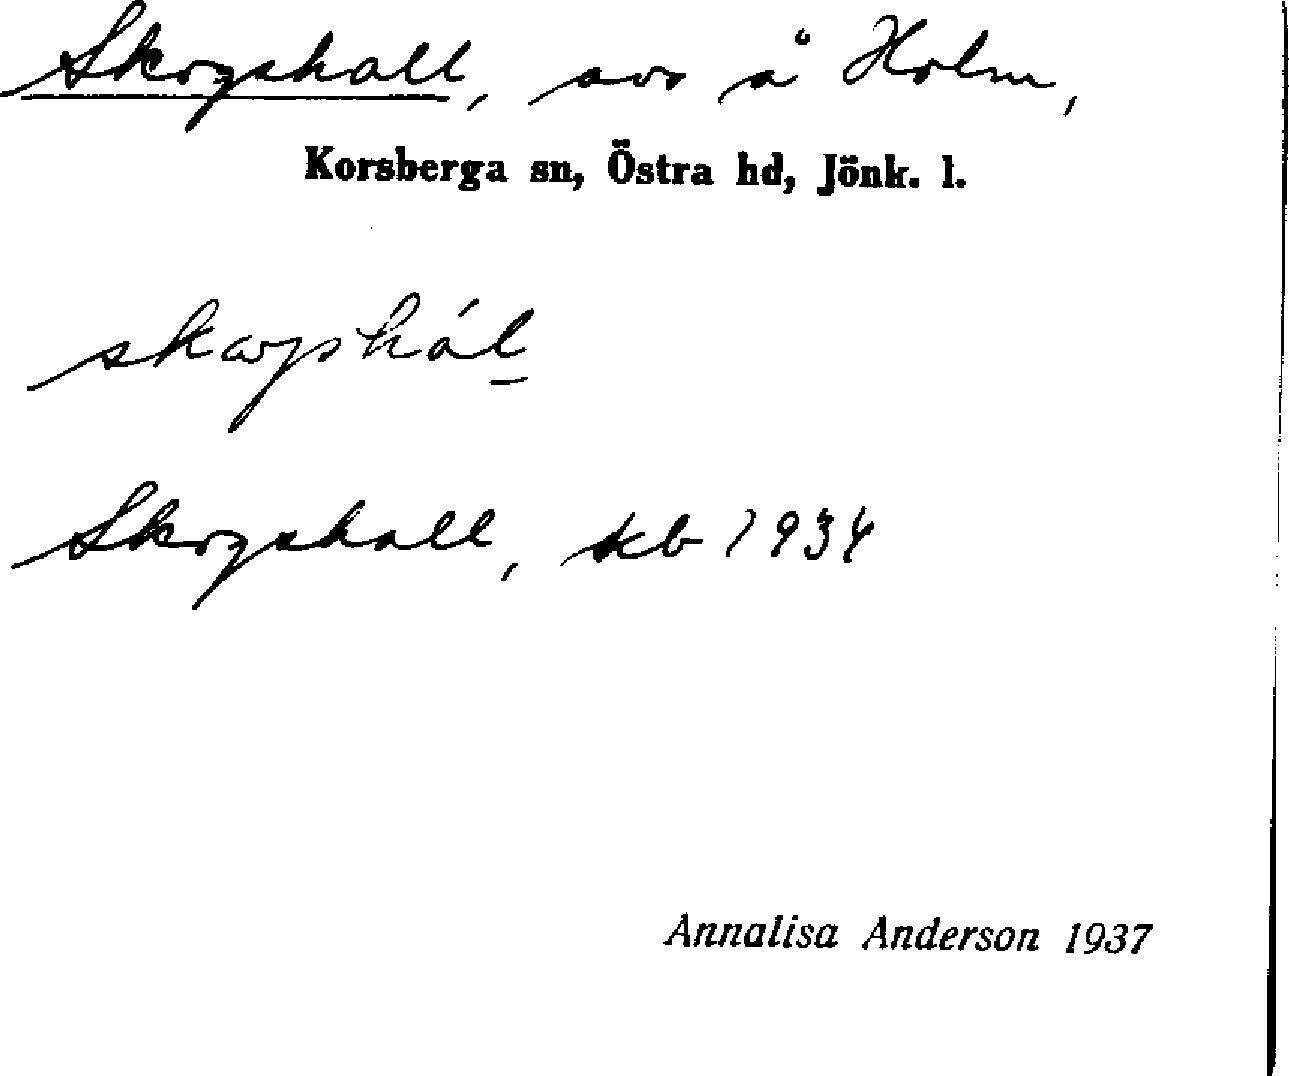 Skogshall, avs å Holm,
Korsberga sn, Östra hd, Jönk. l.
Skogshall, kb 1934
Annalisa Anderson 1937